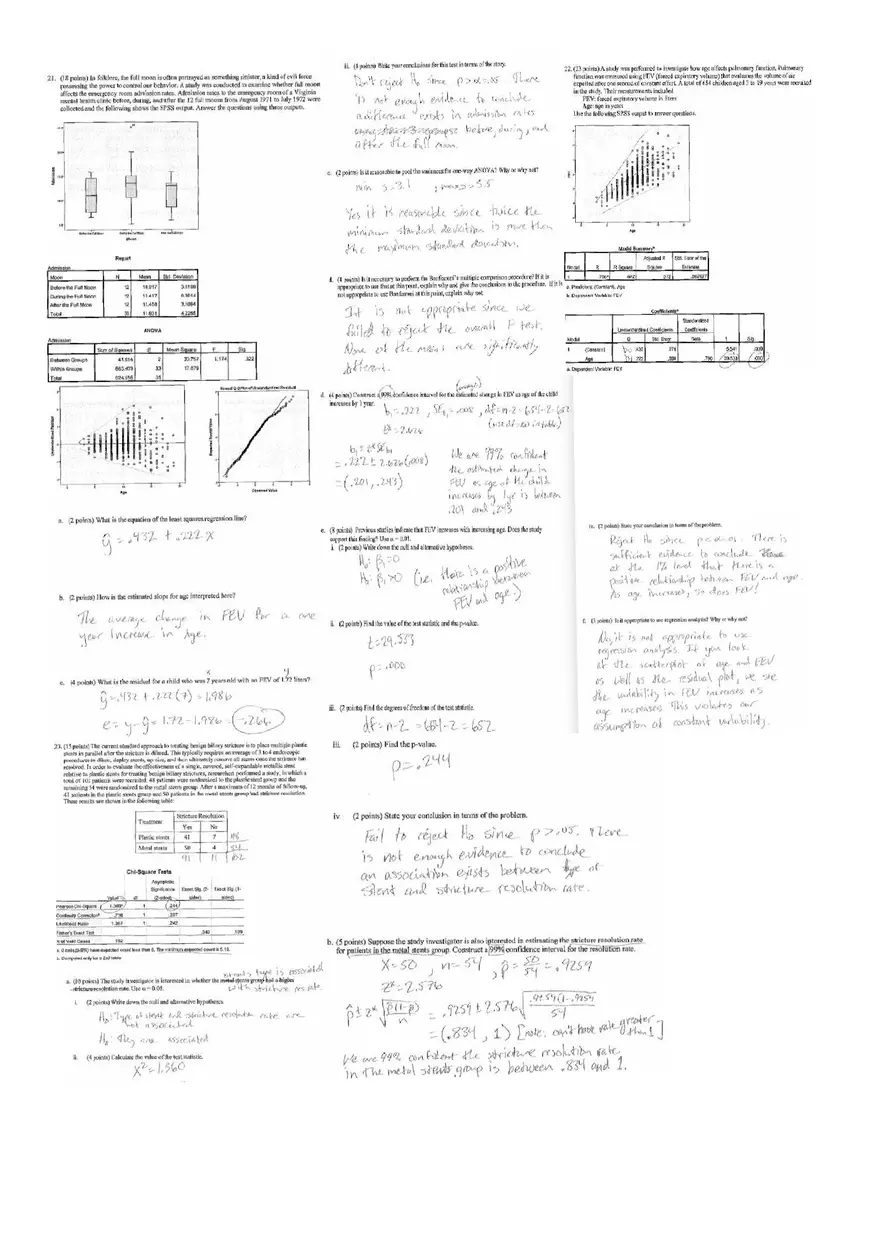 21. (18 points) In folklore, the full moon is often portrayed as something sinister, a kind of evil force
possessing the power to control our behavior. A study was conducted to examine whether full moon
affects the emergency room admission rates. Admission rates to the emergency room of a Virginia
mental health clinic before, during, and after the 12 full moons from August 1971 to July 1972 were
collected and the following shows the SPSS output. Answer the questions using these outputs.
Report
Admission
Moon N Mean Std. Deviation
Before the Full Moon 12
During the Full Moon 12
After the Full Moon 12 11.458
Total
ANOVA
Admission
Sum of Squares df Mean Square F Sig.
Between Groups 2
Within Groups 33
Total 35
Age
Observed Value
a. (2 points) What is the equation of the least squares regression line?
ŷ = .432 + .222 x
b. (2 points) How is the estimated slope for age interpreted here?
The average change in FEV for a one
year increase in Age.
c. (4 points) What is the residual for a child who was 7 years old with an FEV of 1.72 liters?
x y
ŷ = .432 + .222 (7) = 1.986
e = y - ŷ = 1.72 - 1.986 = -.266
23. (15 points) The current standard approach to treating benign biliary stricture is to place multiple plastic
stents in parallel after the stricture is dilated. This typically requires an average of 3 to 4 endoscopic
procedures to dilate, deploy stents, up-size, and then ultimately remove all stents once the stricture has
resolved. In order to evaluate the effectiveness of a single, covered, self-expandable metallic stent
relative to plastic stents for treating benign biliary strictures, researchers performed a study, in which a
total of 102 patients were recruited. 48 patients were randomized to the plastic stent group and the
remaining 54 were randomized to the metal stents group. After a maximum of 12 months of follow-up,
41 patients in the plastic stents group and 50 patients in the metal stents group had stricture resolution.
These results are shown in the following table:
Treatment Stricture Resolution
Yes No
Plastic stents 41 7 48
Metal stents 50 4 54
91 11 102
Chi-Square Tests
Value df Asymptotic Significance (2-sided) Exact Sig. (2-sided) Exact Sig. (1-sided)
Pearson Chi-Square 1 .244
Continuity Correction 1
Likelihood Ratio 1
Fisher's Exact Test
N of Valid Cases 102
stents type is associated
with stricture res rate.
a. (10 points) The study investigator is interested in whether the metal stents group had a higher
stricture resolution rate. Use α = 0.05.
i. (2 points) Write down the null and alternative hypotheses.
H₀: Type of stent and stricture resolution rate are
not associated
Hₐ: They are associated
ii. (4 points) Calculate the value of the test statistic.
X² = 1.360
ii. (4 points) Write your conclusions for this test in terms of the story.
Don't reject H₀ since p > α = .05. There
is not enough evidence to conclude
a difference exists in admission rates
before, during, and
after the full moon.
c. (2 points) Is it reasonable to pool the variances for one-way ANOVA? Why or why not?
min s = 3.1 , max s = 5.5
Yes it is reasonable since twice the
minimum standard deviation is more than
the maximum standard deviation.
f. (4 points) Is it necessary to perform the Bonferroni's multiple comparison procedure? If it is
appropriate to use first at this point, explain why and give the conclusions to the procedure. If it is
not appropriate to use Bonferroni at this point, explain why not.
It is not appropriate since we
failed to reject the overall F test.
None of the means are significantly
different.
(average)
d. (4 points) Construct a 99% confidence interval for the estimated change in FEV as age of the child
increases by 1 year.
b₁ = .222 , SE b₁ = .008 , df = n-2 = 654-2 = 652
t* = 2.626
b₁ ± t* SE b₁
= .222 ± 2.626 (.008)
= (.201, .243)
We are 99% confident
the estimated change in
FEV as age of the child
increases by 1yr is between
.201 and .243
e. (8 points) Previous studies indicate that FEV increases with increasing age. Does the study
support this finding? Use α = 0.01.
i. (2 points) Write down the null and alternative hypotheses.
H₀: β₁ = 0
Hₐ: β₁ > 0 (i.e. there is a positive
relationship between
FEV and age.)
ii. (2 points) Find the value of the test statistic and the p-value.
t = 29.533
p = .000
iii. (2 points) Find the degrees of freedom of the test statistic.
df = n-2 = 654-2 = 652
iii. (2 points) Find the p-value.
p = .244
iv. (2 points) State your conclusion in terms of the problem.
Fail to reject H₀ since p > .05. There
is not enough evidence to conclude
an association exists between type of
stent and stricture resolution rate.
b. (5 points) Suppose the study investigator is also interested in estimating the stricture resolution rate
for patients in the metal stents group. Construct a 99% confidence interval for the resolution rate.
X = 50 , n = 54 , p̂ = 50/54 = .9259
z* = 2.576
p̂ ± z* √(p̂(1-p̂)/n) = .9259 ± 2.576 √(.9259(1-.9259)/54)
= (.834, 1) [note: can't have rate greater than 1]
We are 99% confident the stricture resolution rate
in the metal stents group is between .834 and 1.
22. (23 points) A study was performed to investigate how age affects pulmonary function. Pulmonary
function was measured using FEV (forced expiratory volume) that evaluates the volume of air
expelled after one second of constant effort. A total of 654 children aged 3 to 19 years were recruited
in the study. Their measurements included
FEV: forced expiratory volume in liters
Age: age in years
Use the following SPSS output to answer questions.
Age
Model Summary
Model R R Square Adjusted R Square Std. Error of the Estimate
a. Predictors: (Constant), Age
b. Dependent Variable: FEV
Coefficients
Model Unstandardized Coefficients Standardized Coefficients t Sig.
B Std. Error Beta
1 (Constant) .432
Age .222 .008 29.533 .000
a. Dependent Variable: FEV
iv. (2 points) State your conclusion in terms of the problem.
Reject H₀ since p < α = .01. There is
sufficient evidence to conclude
at the 1% level that there is a
positive relationship between FEV and age.
As age increases, so does FEV!
f. (3 points) Is it appropriate to use regression analysis? Why or why not?
No, it is not appropriate to use
regression analysis. If you look
at the scatterplot of age and FEV
as well as the residual plot, we see
the variability in FEV increases as
age increases. This violates our
assumption of constant variability.